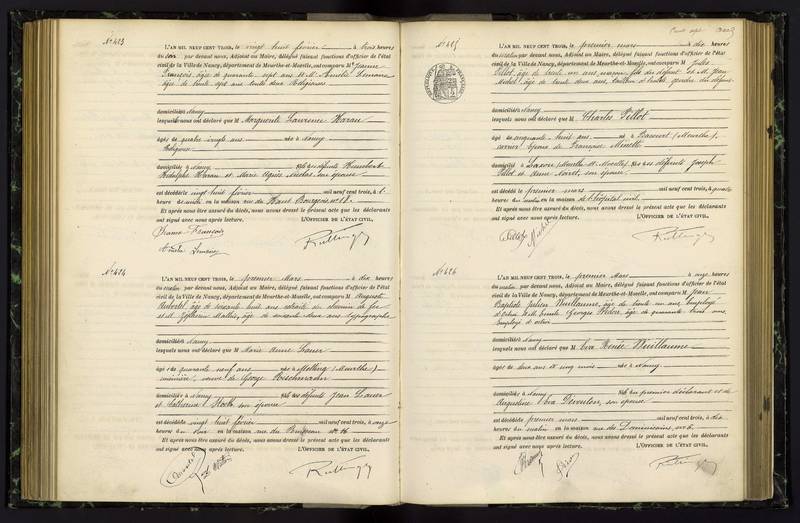 N° 423
L'AN MIL NEUF CENT TROIS, le vingt huit février à trois heures
du soir par devant nous, Adjoint au Maire, délégué faisant fonctions d'officier de l'état
civil de la Ville de Nancy, département de Meurthe-et-Moselle, ont comparu M Jeanne
François, âgée de quarante sept ans et M Amélie Lemoine
âgée de trente sept ans toutes deux Religieuses
domiciliées à Nancy
lesquelles nous ont déclaré que M Marguerite Laurence Haran
âgée de quatre vingts ans née à Nancy
Religieuse
domiciliée à Nancy fille des défunts Humbert
Rodolphe Haran et Marie Agnès Nicolas son épouse
est décédée le vingt huit février mil neuf cent trois, à
heure du matin en la maison rue du Haut Bourgeois n° 18
Et après nous être assuré du décès, nous avons dressé le présent acte que les déclarants
ont signé avec nous après lecture. L'OFFICIER DE L'ÉTAT CIVIL,
N° 424
L'AN MIL NEUF CENT TROIS, le premier Mars à dix heures
du matin par devant nous, Adjoint au Maire, délégué faisant fonctions d'officier de l'état
civil de la Ville de Nancy, département de Meurthe-et-Moselle, ont comparu M Auguste
âgé de soixante huit ans retraité du chemin de fer
et M Mathis, âgé de soixante deux ans typographe
domiciliés à Nancy
lesquels nous ont déclaré que M Marie Anne Lauer
âgée de quarante neuf ans née à Metting (Meurthe)
veuve de George
domiciliée à Nancy fille des défunts Jean Lauer
et Catherine son épouse
est décédée le vingt huit février mil neuf cent trois, à onze
heures du soir en la maison rue du n° 16
Et après nous être assuré du décès, nous avons dressé le présent acte que les déclarants
ont signé avec nous après lecture. L'OFFICIER DE L'ÉTAT CIVIL,
N° 425
L'AN MIL NEUF CENT TROIS, le premier mars à dix heures
du matin par devant nous, Adjoint au Maire, délégué faisant fonctions d'officier de l'état
civil de la Ville de Nancy, département de Meurthe-et-Moselle, ont comparu M Jules
Pillot, âgé de trente un ans, maçon, fils du défunt et M Jean
Michel, âgé de trente deux ans, tailleur d'habits, gendre du défunt
domiciliés à Nancy
lesquels nous ont déclaré que M Charles Pillot
âgé de cinquante huit ans né à (Meurthe),
époux de Françoise Minette
domicilié à Saxon (Meurthe et Moselle), fils des défunts Joseph
Pillot et Anne Noirel, son épouse
est décédé le premier mars mil neuf cent trois, à quatre
heures du matin en la maison de l'hôpital civil
Et après nous être assuré du décès, nous avons dressé le présent acte que les déclarants
ont signé avec nous après lecture. L'OFFICIER DE L'ÉTAT CIVIL,
N° 426
L'AN MIL NEUF CENT TROIS, le premier Mars à onze heures
du matin par devant nous, Adjoint au Maire, délégué faisant fonctions d'officier de l'état
civil de la Ville de Nancy, département de Meurthe-et-Moselle, ont comparu M Jean
Baptiste Julien Wuillaume, âgé de trente un ans, Employé
d'octroi et M Georges, âgé de quarante trois ans
Employé d'octroi
domiciliés à Nancy
lesquels nous ont déclaré que M Eva Renée Wuillaume
âgée de deux ans et cinq mois née à Nancy
domiciliée à Nancy fille du premier déclarant et de
Augustine Eva son épouse
est décédée le premier mars mil neuf cent trois, à dix
heures du matin en la maison rue des Dominicains, n° 6
Et après nous être assuré du décès, nous avons dressé le présent acte que les déclarants
ont signé avec nous après lecture. L'OFFICIER DE L'ÉTAT CIVIL,